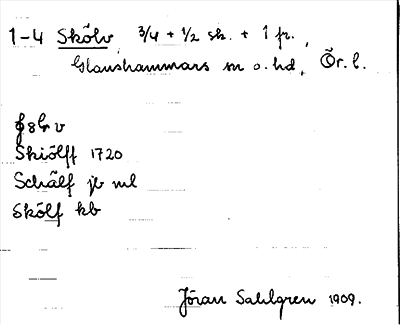 1-4 Skölv 3/4 + 1/2 sk. + 1 fr.,
Glanshammars sn o. hd, Ör. l.
Skiölff 1720
Schälf jb ml
Skölf kb
Jöran Sahlgren 1909.